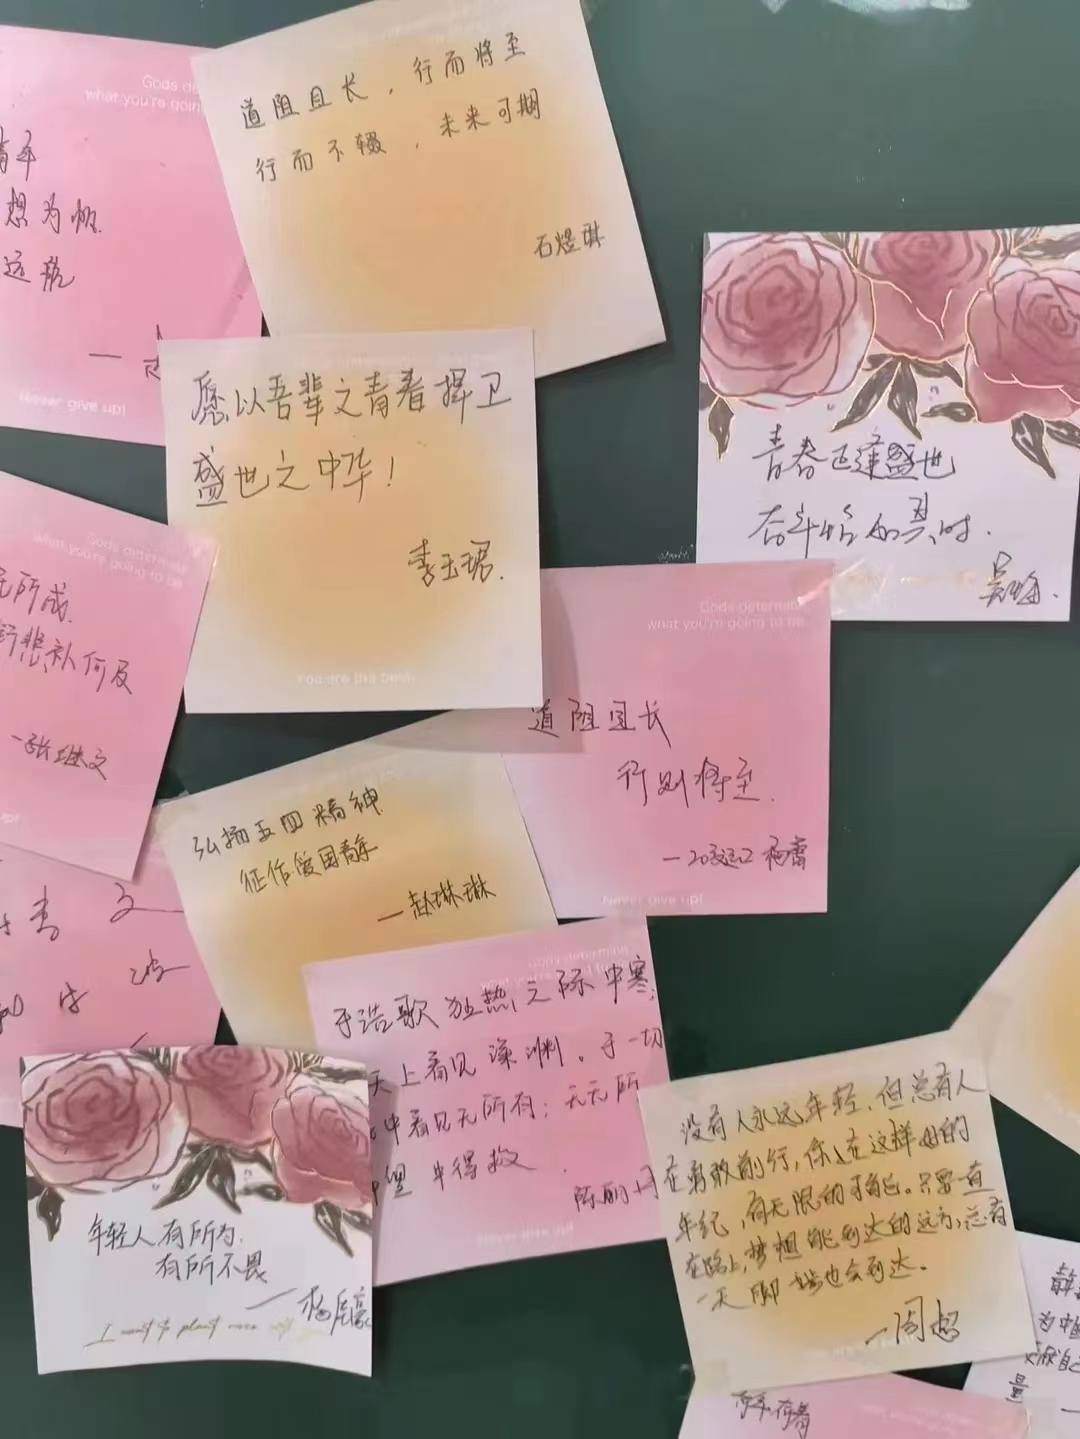 Gods de
what you're goin
青年
想为帆
远航
Never give up!
道阻且长，行而将至
行而不辍，未来可期
石煜琳
愿以吾辈之青春捍卫
盛世之中华！
李玉珺.
You are the best!
青春正逢盛世
奋斗恰如其时.
吴海.
Gods determine
what you're going to be
无所成.
悲补何及
—张继文
Gods determine
what you're going to be
道阻且长
行则将至.
Never give up!
弘扬五四精神
征作爱国青年
—赵琳琳
青之
Gods determine
于浩歌狂热之际中寒;
天上看见深渊。于一切
中看见无所有；于无所
中得救.
陈丽丹
Never give up!
年轻人有所为.
有所不畏
—杨
I want to plant
没有人永远年轻，但总有人
在勇敢前行，你在这样好的
年纪，有无限的可能。只要一直
在路上，梦想能到达的远方，总有
一天脚步也会到达。
—周
为中国
献自己
量
青年有着